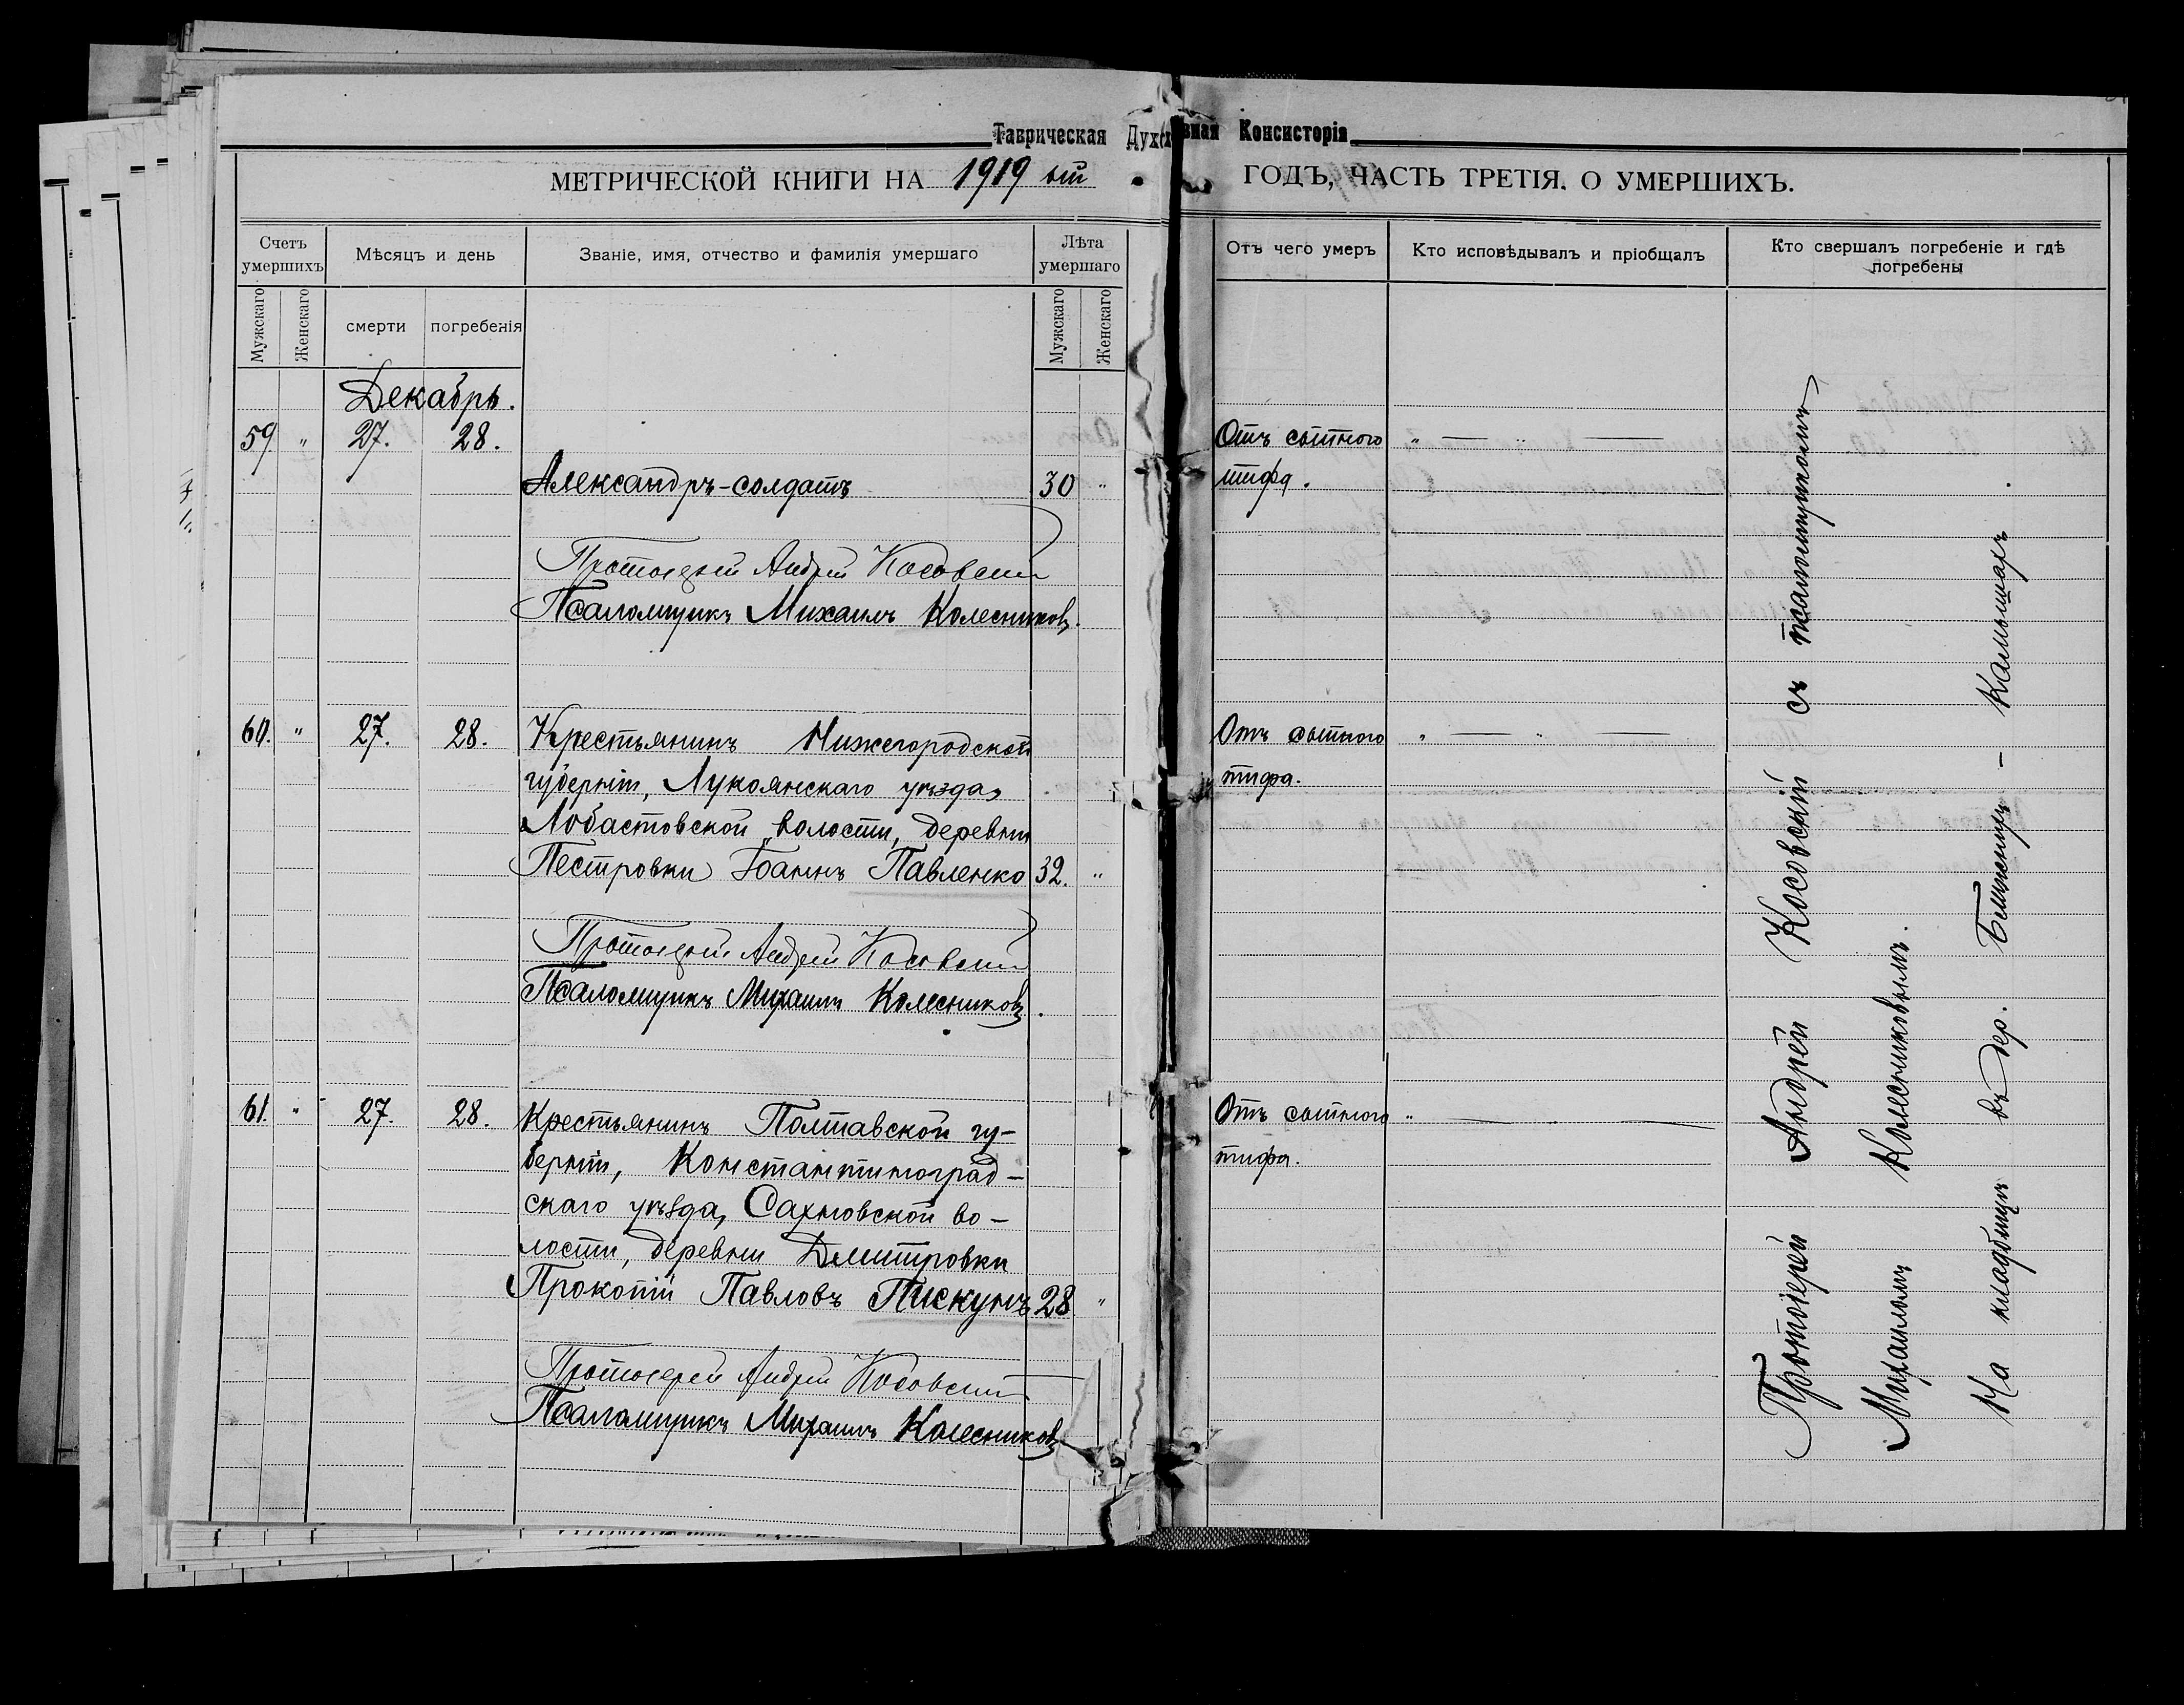 Таврическая Духовная Консисторія
МЕТРИЧЕСКОЙ КНИГИ НА 1919 ый ГОДЪ, ЧАСТЬ ТРЕТІЯ. О УМЕРШИХЪ.
Счетъ умершихъ
Мѣсяцъ и день
Званіе, имя, отчество и фамилія умершаго
Лѣта умершаго
Отъ чего умеръ
Кто исповѣдывалъ и пріобщалъ
Кто свершалъ погребеніе и гдѣ погребены
Мужскаго
Женскаго
смерти
погребенія
Мужскаго
Женскаго
Декабрь.
59. " 27. 28.
Отъ сыпного
Александръ-солдатъ 30 "
тифа.
Протоіерей Андрей Косовскій
Псаломщикъ Михаилъ Колесниковъ.
60. " 27. 28. Крестьянинъ Нижегородской
Отъ сыпного
губерніи, Лукоянскаго уѣзда,
тифа.
Лобастовской волости, деревни
Пестровки Іоаннъ Павленко 32. "
Протоіерей Андрей Косовскій
Псаломщикъ Михаилъ Колесниковъ.
61. " 27. 28. Крестьянинъ Полтавской гу-
Отъ сыпного
берніи, Константиноград-
тифа.
скаго уѣзда, Сахновской во-
лости, деревни Дмитровки
Прокопій Павловъ Пискунъ 28. "
Протоіерей Андрей Косовскій
Псаломщикъ Михаилъ Колесниковъ
Протоіерей Андрей Косовскій съ псаломщикомъ
Михаиломъ Колесниковымъ.
На кладбищѣ въ дер. –